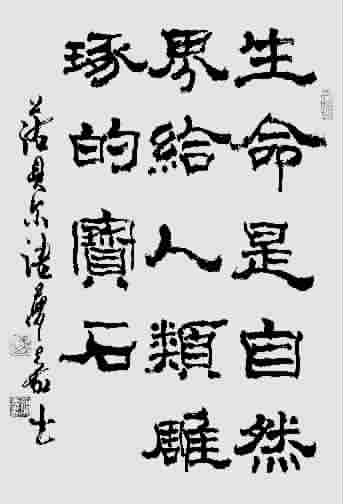 生命是自然
界給人類雕
琢的寶石
諾貝尔語